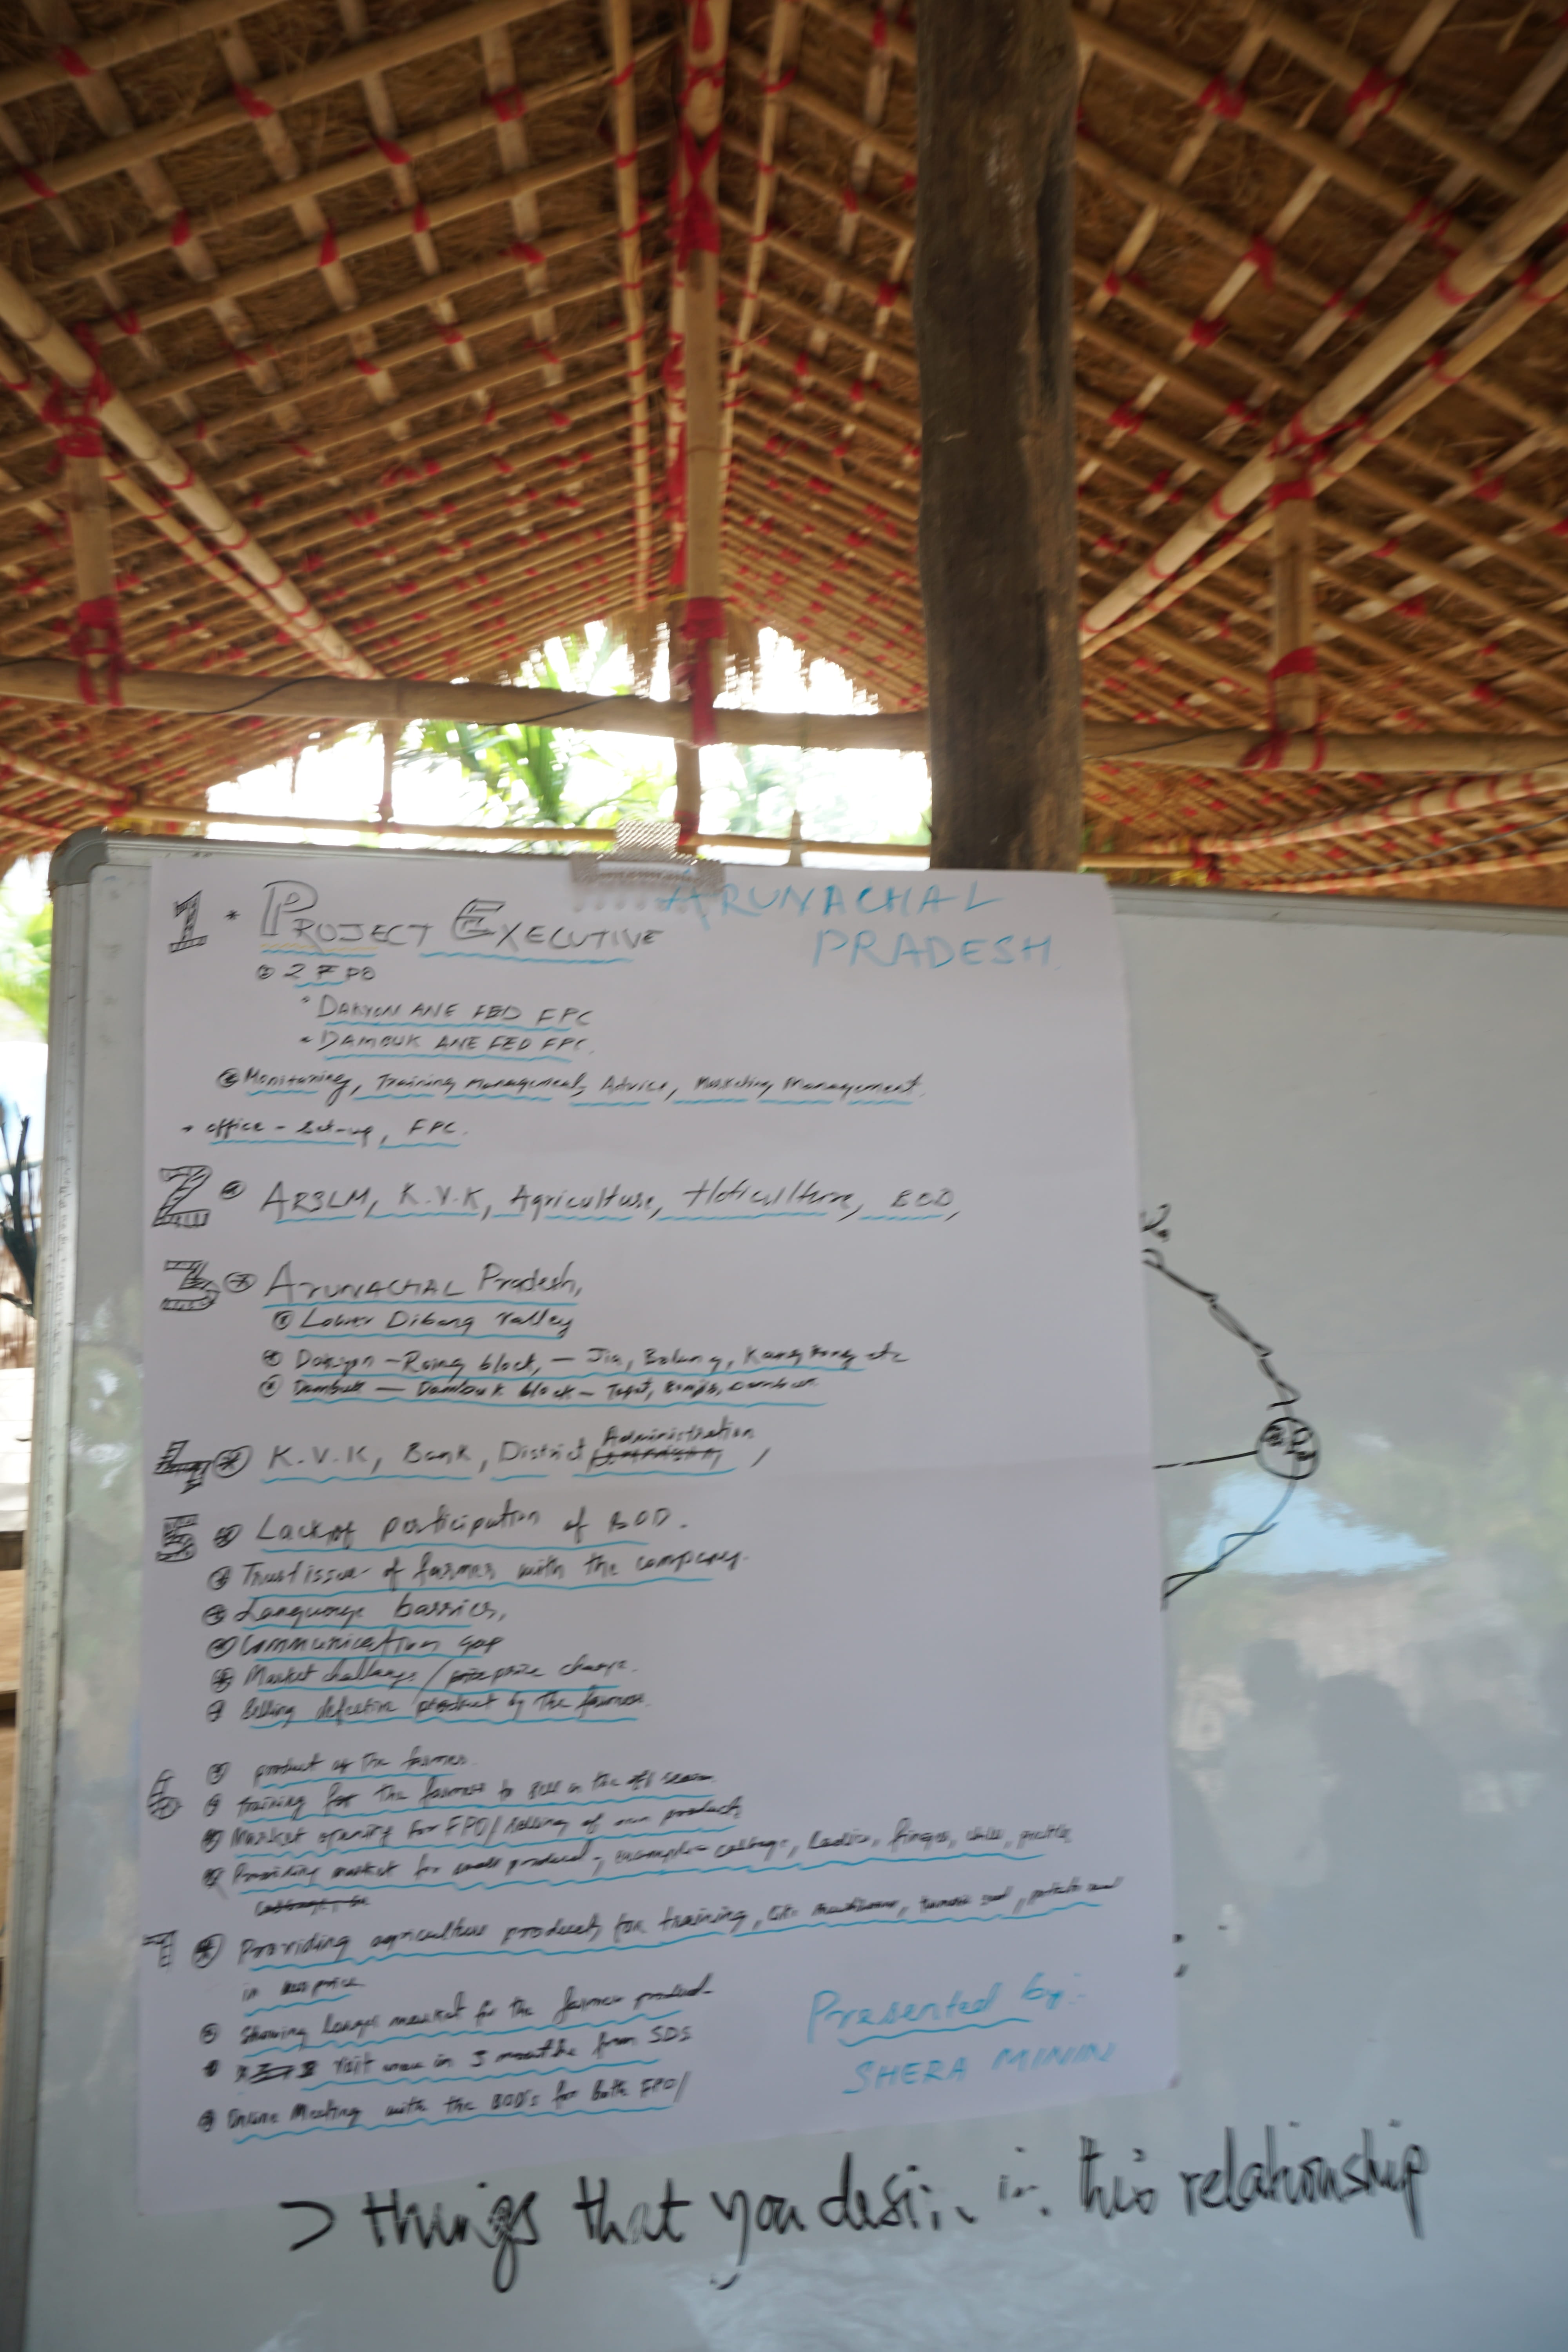 ARUNACHAL
PRADESH
1. PROJECT EXECUTIVE
2 FPO
DAKYON ANE FED FPC
DAMBUK ANE FED FPC.
Monitoring, Training Management, Advice, Marketing Management.
office - set-up, FPC.
2 ARSLM, K.V.K, Agriculture, Hoticulture, BOD,
3 ARUNACHAL Pradesh,
Lower Dibang Valley
Dakyon - Roing block, - Jia, Bolung, etc
Dambuk - Dambuk block -
4 K.V.K, Bank, District Administration,
5 Lack of participation of BOD.
Trust issue of farmer with the company.
Language barrier,
Communication gap
Market challange / price change.
Selling defective product by the farmer.
6 product of the farmer.
Training for the farmer to sell in the off season
Market opening for FPO/ selling of own product
Providing market for small product, example - cabbage, Ladies, finger, chilli,
7 Providing agriculture product, for training, like
in less price
Showing larger market for the farmer product
visit once in 3 months from SDS
Online Meeting with the BOD's for both FPO/
Presented by:-
SHERA MINING
> things that you desire in this relationship